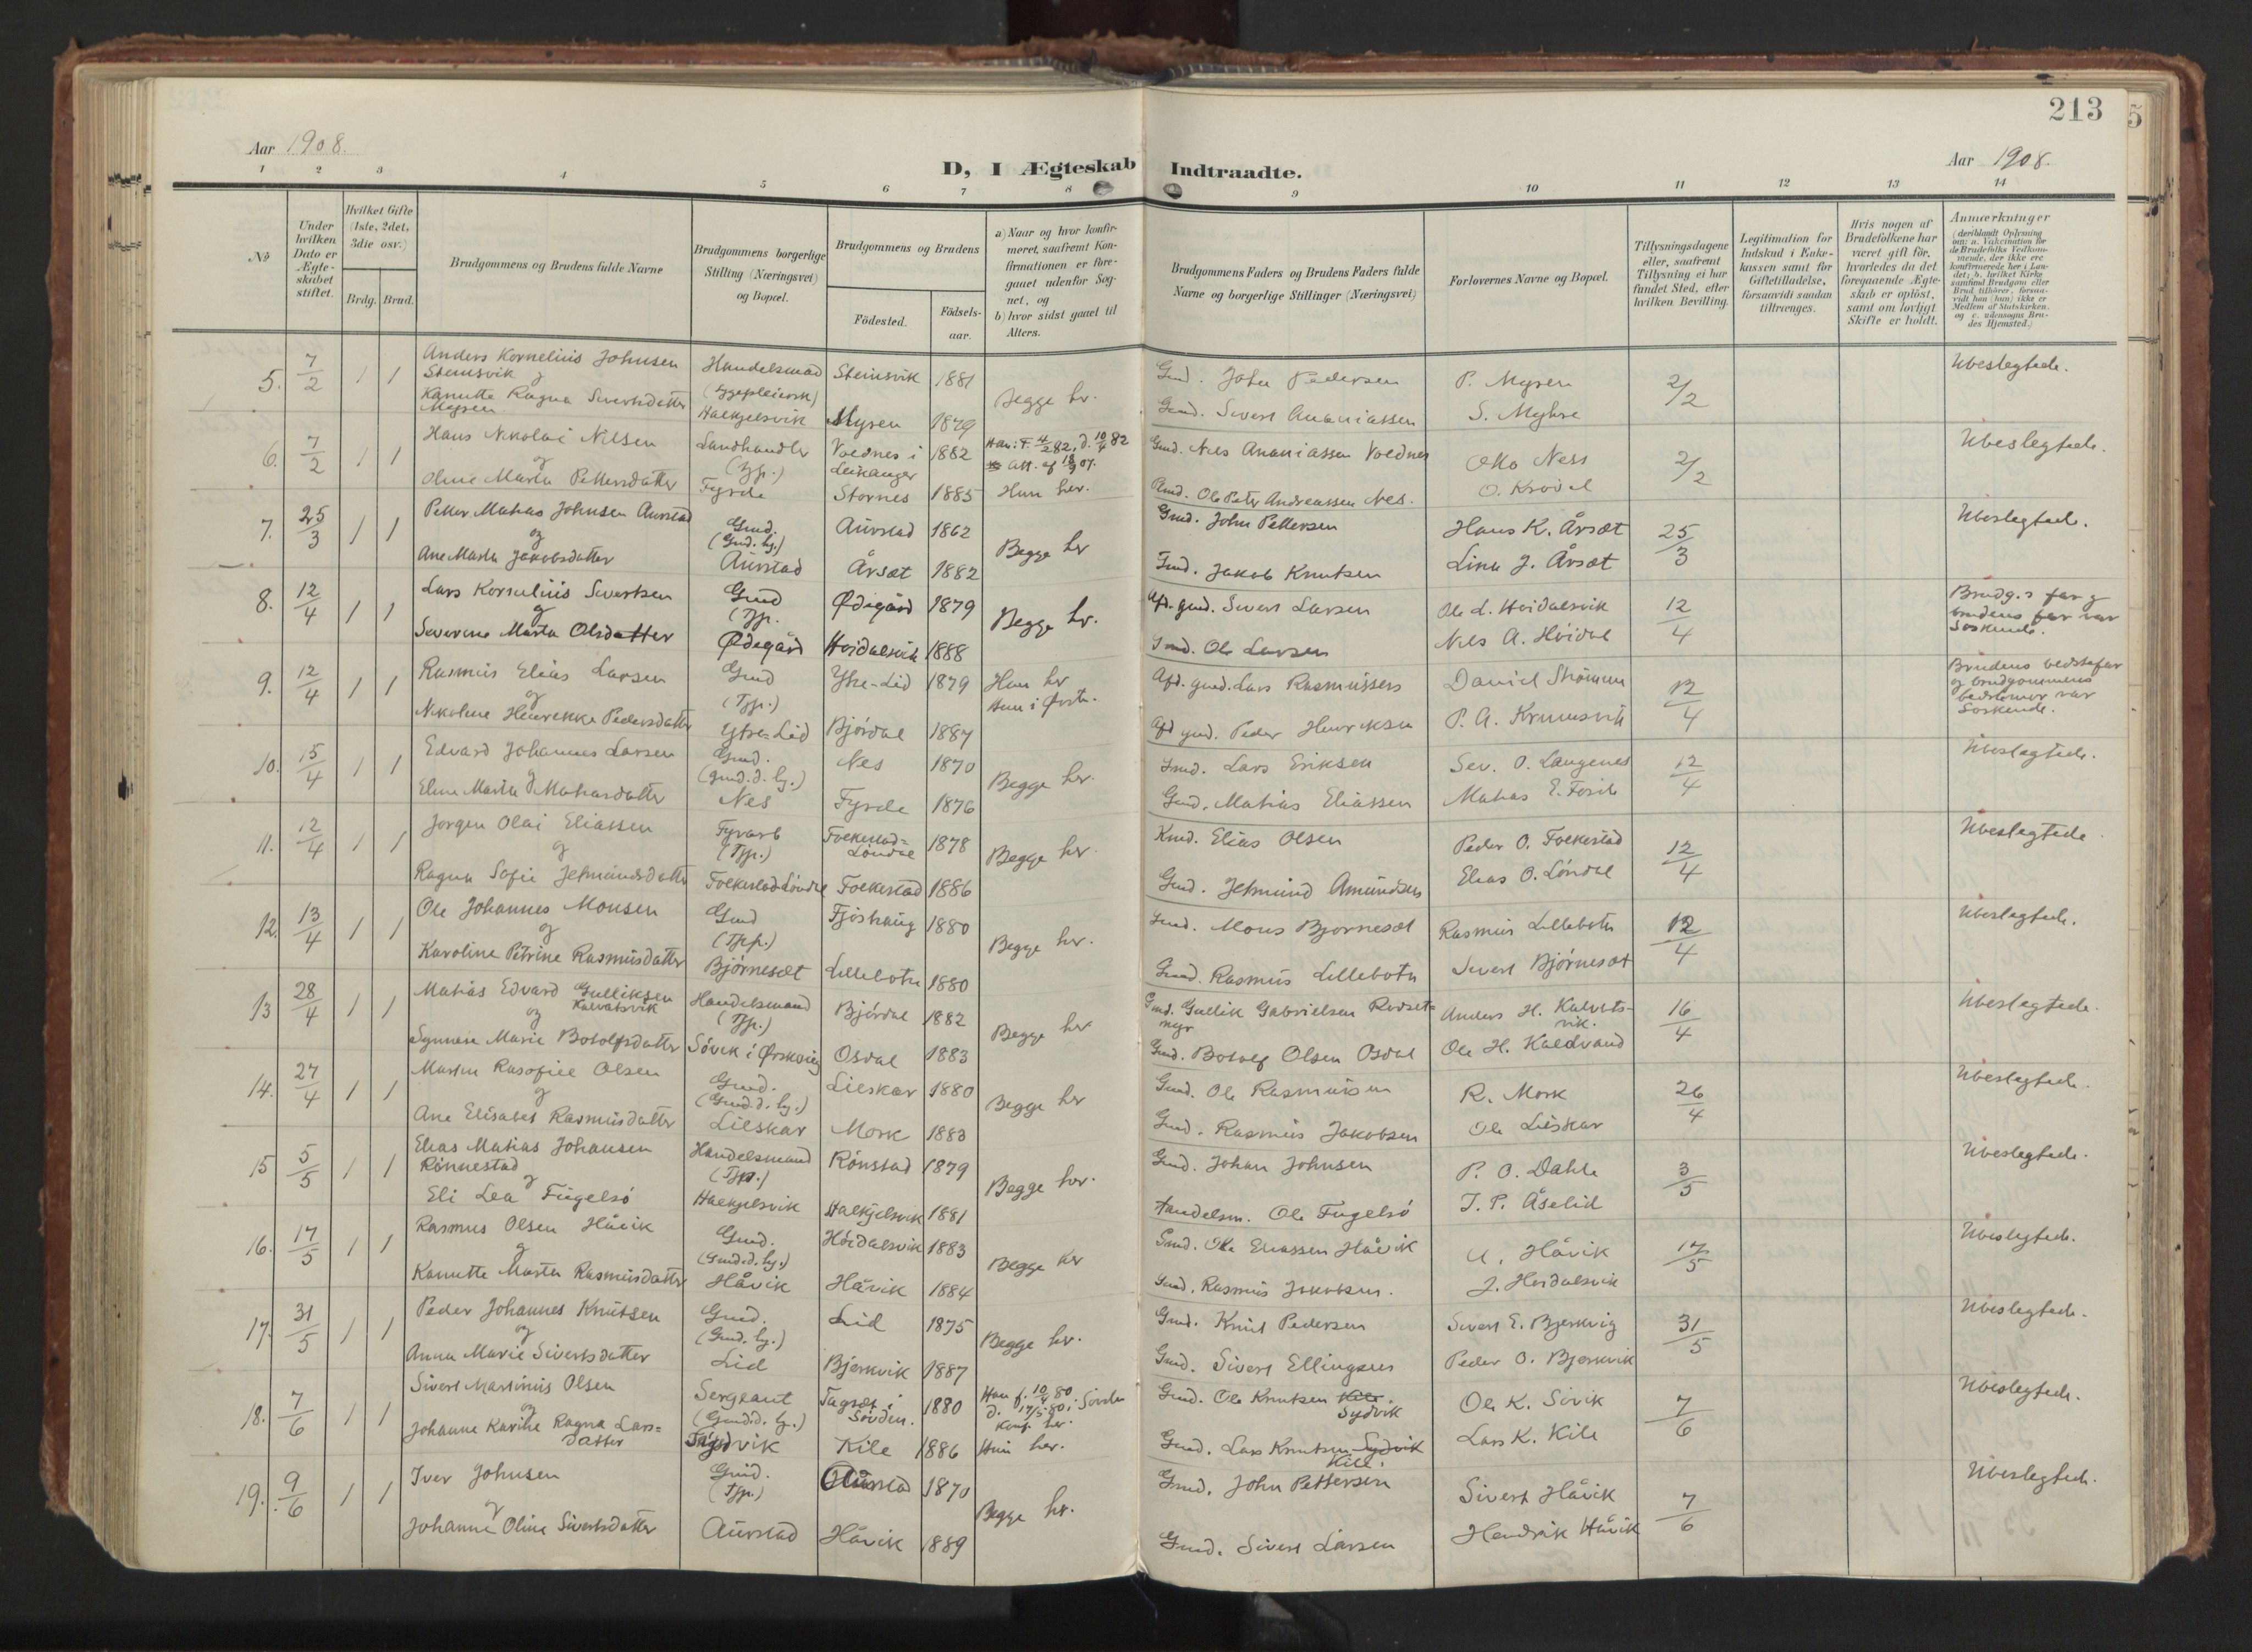 213
5
Aar 1908.
Aar 1908.
D, I Ægteskab Indtraadte.
1 2 3 4 5 6 7 8 9 10 11 12 13 14
No
Under hvilken Dato er Ægteskabet stiftet.
Hvilket Gifte (1ste, 2det, 3die osv.)
Brdg. Brud.
Brudgommens og Brudens fulde Navne
Brudgommens borgerlige Stilling (Næringsvei) og Bopæl.
Brudgommens og Brudens
Födested.
Födsels-aar.
a) Naar og hvor konfirmeret, saafremt Konfirmationen er foregaaet udenfor Sognet, og
b) hvor sidst gaaet til Alters.
Brudgommens Faders og Brudens Faders fulde Navne og borgerlige Stillinger (Næringsvei)
Forlovernes Navne og Bopæl.
Tillysningsdagene eller, saafremt Tillysning ei har fundet Sted, efter hvilken Bevilling.
Legitimation for Indskud i Enkekassen samt for Giftetilladelse, forsaavidt saadan tiltrænges.
Hvis nogen af Brudefolkene har været gift för, hvorledes da det foregaaende Ægteskab er oplöst, samt om lovligt Skifte er holdt.
Anmærkninger (deriblandt Oplysning om: a. Vakcination for de Brudefolks Vedkommende, der ikke ere konfirmerede her i Landet; b. hvilket Kirkesamfund Brudgom eller Brud tilhörer, forsaavidt han (hun) ikke er Medlem af Statskirken, og c. udensogns Brudes Hjemsted.)
5. 7/2 1 1 Anders Kornelius Johnsen Steinsvik og Handelsmand Steinsvik 1881 Gmd. John Pedersen P. Myren 2/2 Ubeslegtede.
Kanutte Ragna Sivertsdatter Myren Halkjelsvik Myren 1879 Begge her. Gmd. Sivert Ananiassen S. Myhre
6. 7/2 1 1 Hans Nikolai Nilsen og Landhandler Voldnes i Leikanger 1882 Han: F. 4/2 82, d. 10/4 82 Att. af 18/9 07. Gmd. Nils Ananiassen Voldnes Otto Ness 2/2 Ubeslegtede.
Oline Marta Pettersdatter Fyrde Stornes 1885 Hun her. Gmd. Ole Peter Andreassen Nes. O. Krøvel
7. 25/3 1 1 Petter Matias Johnsen Aurstad og Gmd. (Gmd. hj.) Aurstad 1862 Gmd. John Pettersen Hans K. Årsæt 25/3 Ubeslegtede.
Ane Marta Jakobsdatter Aurstad Årsæt 1882 Begge her Gmd. Jakob Knutsen Linu J. Årsæt
8. 12/4 1 1 Lars Kornelius Sivertsen og Gmd (Tjp. Ødegård 1879 Afd. gmd. Sivert Larsen Ole L. Hoidalsvik 12/4 Brudg.s far og brudens far var søskende.
Severine Marta Olsdatter Ødegård Hoidalsvik 1888 Begge her. Gmd. Ole Larsen Nils A. Hoidal
9. 12/4 1 1 Rasmus Elias Larsen og Gmd (Tjp.) Ytre-Lid 1879 Han her Hun i Ørsta. Afd. gmd. Lars Rasmussen Daniel Strømmen 12/4 Brudens bedstefar og brudgommens bedstemor var søskende.
Nikoline Henrikke Pedersdatter Ytre-Lid Bjørdal 1887 Afd gmd. Peder Henriksen P. A. Krumsvik
10. 15/4 1 1 Edvard Johannes Larsen og Gmd. (gmd.d. hj.) Nes 1870 Gmd. Lars Eriksen Sev. O. Langenes 12/4 Ubeslegtede.
Eline Marta Matiasdatter Nes Fyrde 1876 Begge her. Gmd. Matias Eliassen Matias E.
11. 12/4 1 1 Jørgen Olai Eliassen og Fyrarb (Tjp.) Folkestad-Løndal 1878 Kmd. Elias Olsen Peder O. Folkestad 12/4 Ubeslegtede.
Ragna Sofie Jetmundsdatter Folkestad-Løndal Folkestad 1886 Begge her. Gmd. Jetmund Amundsen Elias O. Løndal
12. 13/4 1 1 Ole Johannes Monsen og Gmd (Tjp.) Fjøshaug 1880 Gmd. Mons Bjørnesæt Rasmus Lillebotn 12/4 Ubeslegtede.
Karoline Petrine Rasmusdatter Bjørnesæt Lillebotn 1880 Begge her. Gmd. Rasmus Lillebotn Sivert Bjørnesæt
13 28/4 1 1 Matias Edvard Gulliksen Kalvatsvik og Handelsmand (Tjp.) Bjørdal 1882 Gmd. Gullik Gabrielsen Rødset-myr Anders H. Kalvatsvik. 16/4 Ubeslegtede.
Synneve Marie Botolfsdatter Søvik i Ørskoug Osdal 1883 Begge her Gmd. Botolf Olsen Osdal Ole H. Kaldvand
14. 27/4 1 1 Martin Rasofiel Olsen og Gmd. (Gmd.d. hj.) Lieskar 1880 Gmd. Ole Rasmussen R. Mork 26/4 Ubeslegtede.
Ane Elisabet Rasmusdatter Lieskar Mork 1883 Begge her Gmd. Rasmus Jakobsen Ole Lieskar
15 5/5 1 1 Elias Matias Johansen Rønnestad og Handelsmand (Tjp.) Rønstad 1879 Gmd. Johan Johnsen P. O. Dahle 3/5 Ubeslegtede.
Eli Lea Fugelsø Halkjelsvik Halkjelsvik 1881 Begge her. Handelsm. Ole Fugelsø T. P. Åselid
16. 17/5 1 1 Rasmus Olsen Håvik og Gmd. (Gmd.d. hj.) Hoidalsvik 1883 Gmd. Ole Eliassen Håvik A. Håvik 17/5 Ubeslegtede.
Kanutte Marta Rasmusdatter Håvik Håvik 1884 Begge her Gmd. Rasmus Jakobsen. J. Hoidalsvik
17. 31/5 1 1 Peder Johannes Knutsen og Gmd. (Gmd. hj.) Lid 1875 Gmd. Knut Pedersen Sivert E. Bjerkvig 31/5 Ubeslegtede.
Anna Marie Sivertsdatter Lid Bjerkvik 1887 Begge her. Gmd. Sivert Ellingsen Peder O. Bjerkvik
18. 7/6 1 1 Sivert Martinus Olsen og Sergeant (Gmd.d. hj.) i Søvden. 1880 Han f. 10/4 80 d. 17/5 80 i Søvden Konf. her. Gmd. Ole Knutsen Kile. Sydvik Ole K. Sivik 7/6 Ubeslegtede.
Johanne Karine Ragna Larsdatter Kile 1886 Hun her. Gmd. Lars Knutsen Sydvik Kile. Lars K. Kile
19. 9/6 1 1 Iver Johnsen og Gmd. (Tjp.) Aurstad 1870 Gmd. John Pettersen Sivert Håvik 7/6 Ubeslegtede.
Johanne Oline Sivertsdatter Aurstad Håvik 1889 Begge her. Gmd. Sivert Larsen Hendrik Håvik